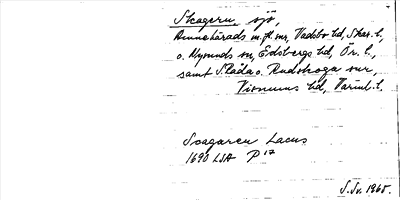 Skagern, sjö,
Finnerödja m. fl. snr, Vadsbo hd, Skar. l.,
o. Nysunds sn, Edsbergs hd, Ör. l.,
samt S. Råda o. Rudskoga snr,
Visnums hd, Värml. l.
Scagaren Lacus
1690 LSA P 17
S. Sv. 1965.